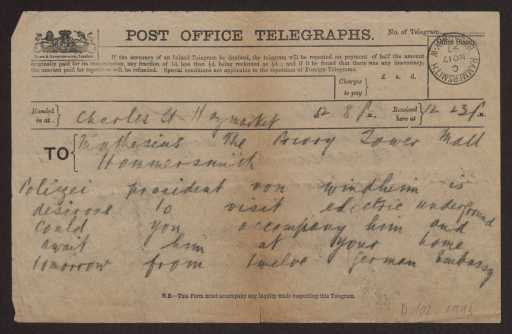 POST OFFICE TELEGRAPHS.
No. of Telegram
If the accuracy of an Inland Telegram be doubted, the telegram will be repeated on payment of half the amount
originally paid for its transmission, any fraction of 1d. less than ½d. being reckoned as ½d.; and if it be found that there was any inaccuracy,
the amount paid for repetition will be refunded. Special conditions are applicable to the repetition of Foreign Telegrams.
Charges to pay
£ s. d.
HAMMERSMITH
C
NO 17
Handed in at
Charles St Haymarket
Received here at
TO
Muthesius The Priory Lower Mall
Hammersmith
Polizei president von windheim is
desirose to visit electric underground
could you accompany him and
await him at your home
tomorrow from twelve german Embassy
N.B.—This Form must accompany any inquiry made respecting this Telegram.